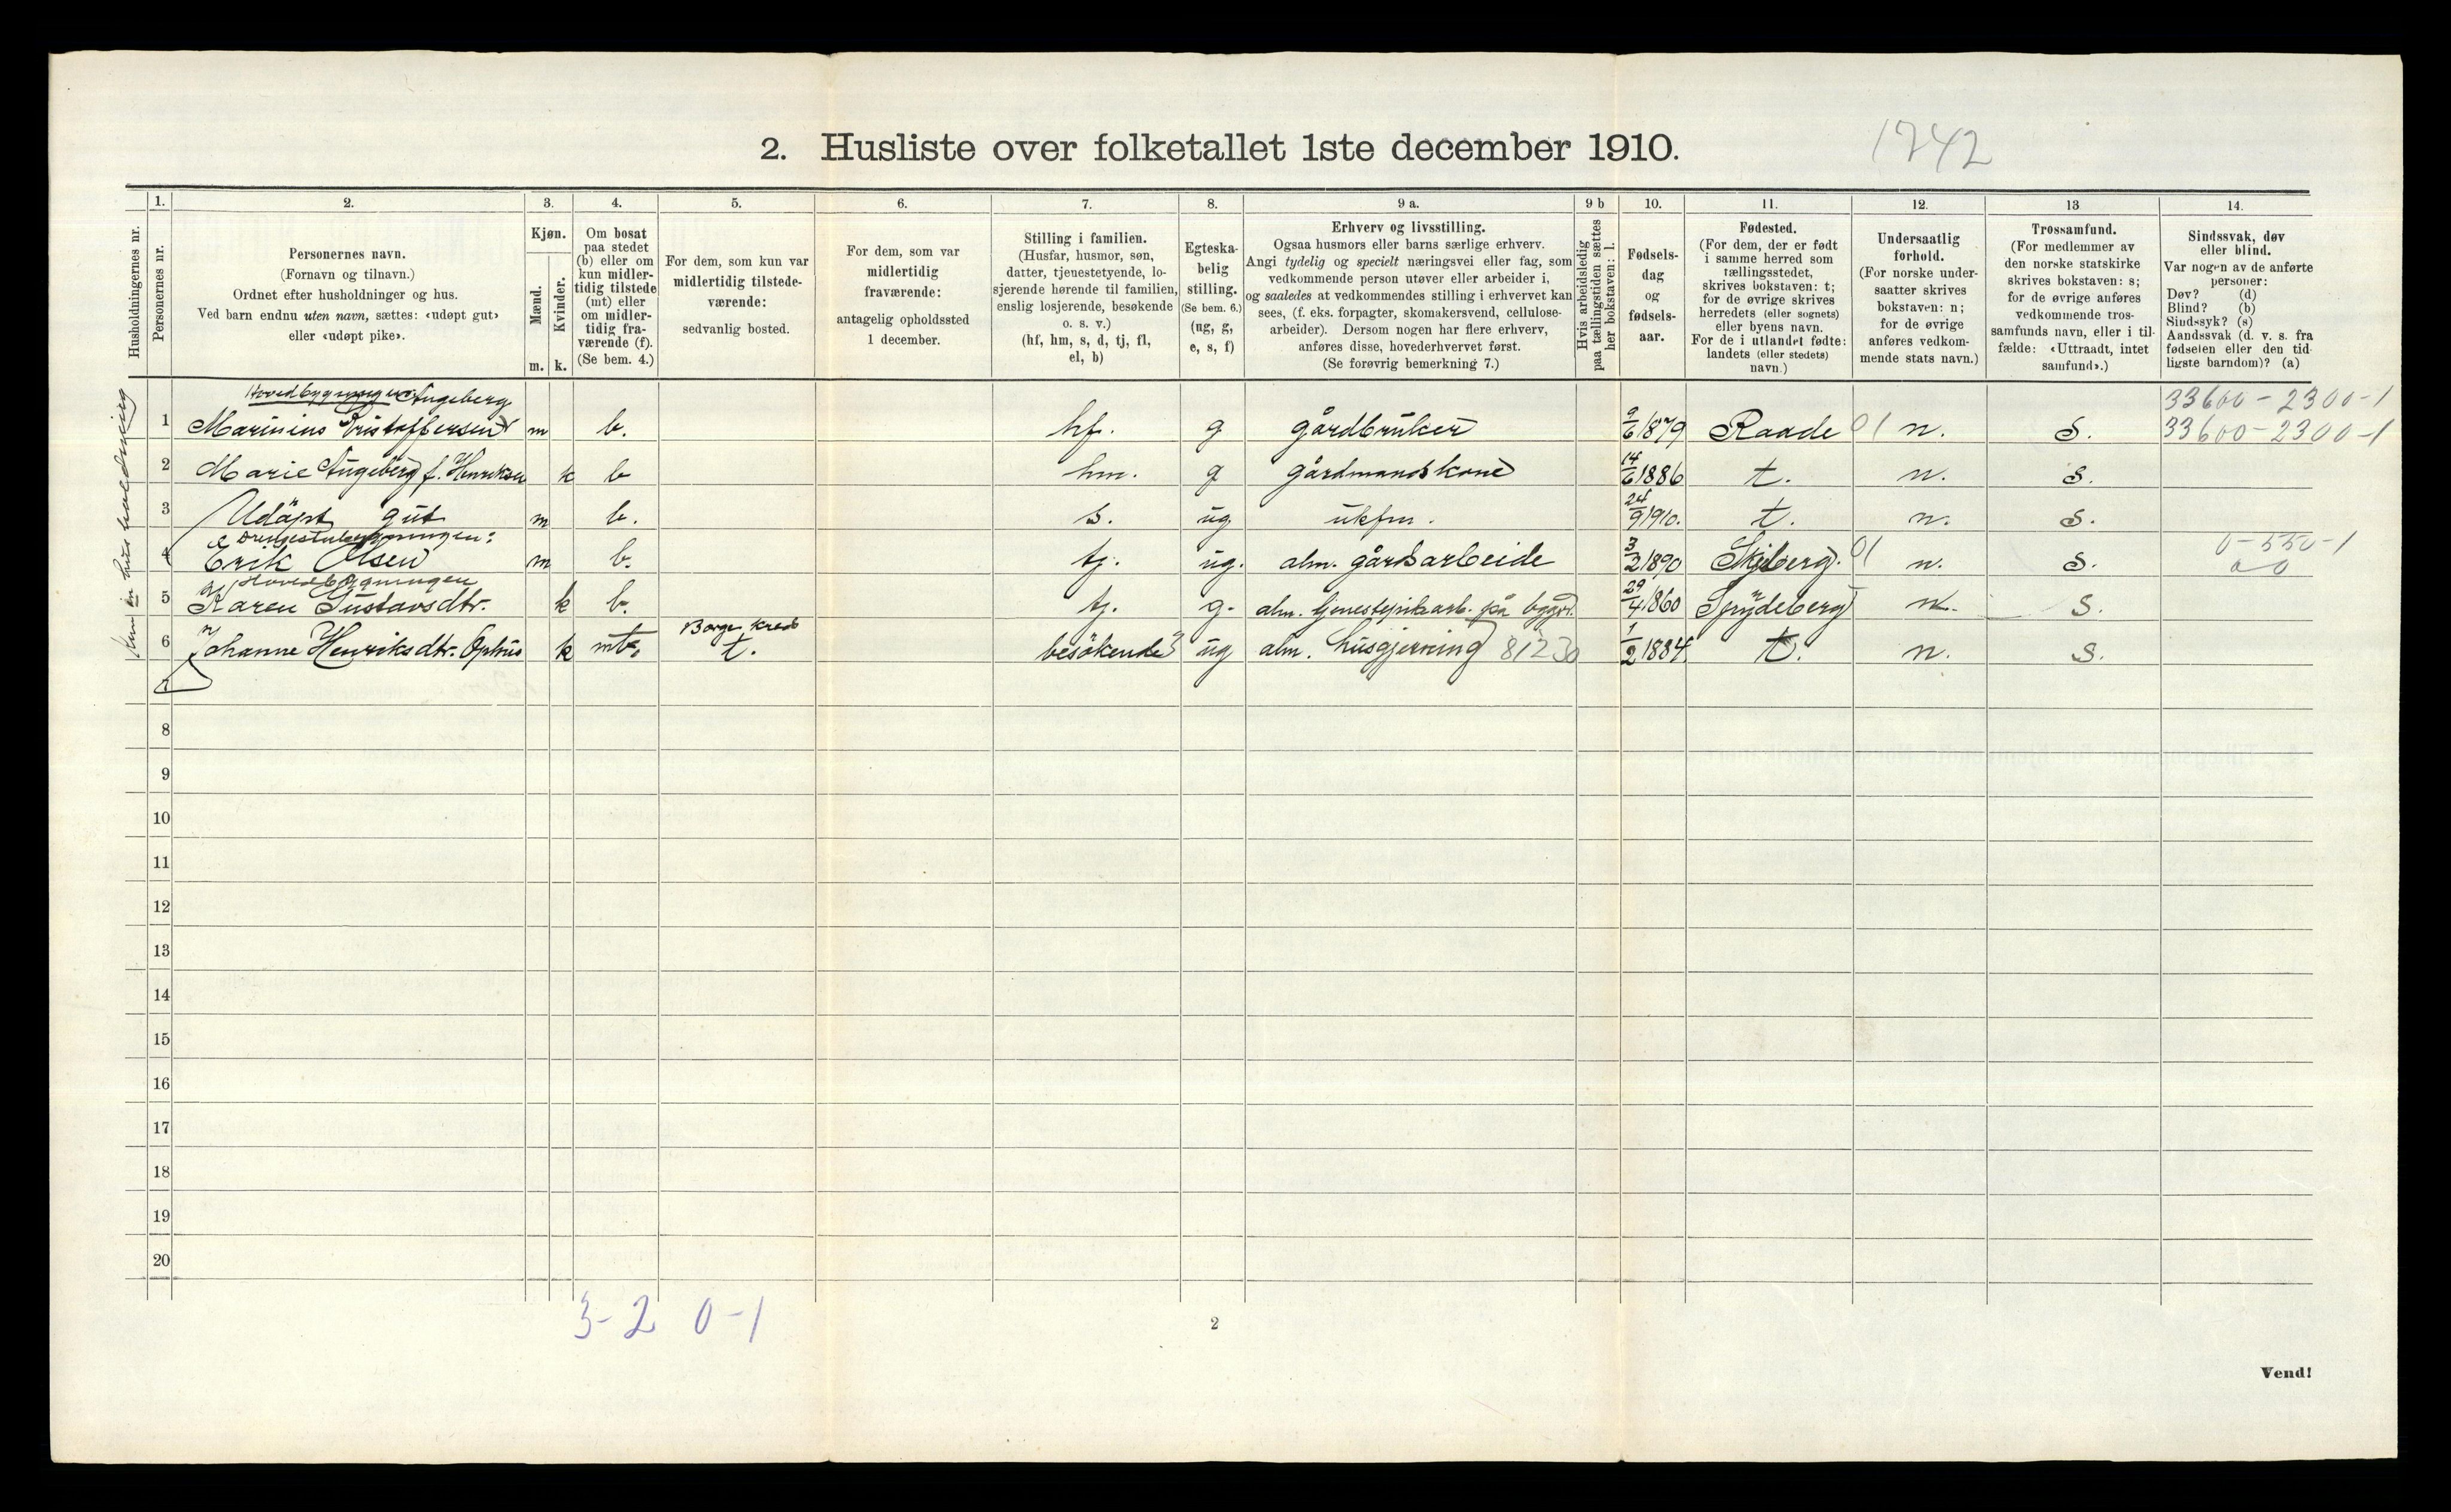 2. Husliste over folketallet 1ste december 1910.
1742
Husholdningernes nr.
1.
Personernes nr.
2.
Personernes navn.
(Fornavn og tilnavn.)
Ordnet efter husholdninger og hus.
Ved barn endnu uten navn, sættes: «udøpt gut»
eller «udøpt pike».
3.
Kjøn.
Mænd.
Kvinder.
m. k.
4.
Om bosat
paa stedet
(b) eller om
kun midler-
tidig tilstede
(mt) eller
om midler-
tidig fra-
værende (f).
(Se bem. 4.)
5.
For dem, som kun var
midlertidig tilstede-
værende:
sedvanlig bosted.
6.
For dem, som var
midlertidig
fraværende:
antagelig opholdssted
1 december.
7.
Stilling i familien.
(Husfar, husmor, søn,
datter, tjenestetyende, lo-
sjerende hørende til familien,
enslig losjerende, besøkende
o. s. v.)
(hf, hm, s, d, tj, fl,
el, b)
8.
Egteska-
belig
stilling.
(Se bem. 6.)
(ug, g,
e, s, f)
9 a.
Erhverv og livsstilling.
Ogsaa husmors eller barns særlige erhverv.
Angi tydelig og specielt næringsvei eller fag, som
vedkommende person utøver eller arbeider i,
og saaledes at vedkommendes stilling i erhvervet kan
sees, (f. eks. forpagter, skomakersvend, cellulose-
arbeider). Dersom nogen har flere erhverv,
anføres disse, hovederhvervet først.
(Se forøvrig bemerkning 7.)
9 b
Hvis arbeidsledig
paa tællingstiden sættes
her bokstaven: l.
10.
Fødsels-
dag
og
fødsels-
aar.
11.
Fødested.
(For dem, der er født
i samme herred som
tællingsstedet,
skrives bokstaven: t;
for de øvrige skrives
herredets (eller sognets)
eller byens navn.
For de i utlandet fødte:
landets (eller stedets)
navn.)
12.
Undersaatlig
forhold.
(For norske under-
saatter skrives
bokstaven: n;
for de øvrige
anføres vedkom-
mende stats navn.)
13
Trossamfund.
(For medlemmer av
den norske statskirke
skrives bokstaven: s;
for de øvrige anføres
vedkommende tros-
samfunds navn, eller i til-
fælde: «Uttraadt, intet
samfund».)
14.
Sindssvak, døv
eller blind.
Var nogen av de anførte
personer:
Døv? (d)
Blind? (b)
Sindssyk? (s)
Aandssvak (d. v. s. fra
fødselen eller den tid-
ligste barndom)? (a)
Kun én husholdning
Angeberg
33600-2300-1
1 Marinius Kristoffersen m b. hf. g gårdbruker 9/6 1879 Raade 01 n. s. 33600-2300-1
2 Marie Angeberg f. Henriksen k b hm. g gårdmandskone 14/6 1886 t. n. s.
3 Udöpt gut m b. s. ug 24/9 1910. t. n. s.
Drengestubygningen:
0-550-1
4 Erik Olsen m b. tj. ug. alm. gårdsarbeide 3/2 1890 Skjeberg. 01 n. s. 0-0
Hovedbygningen
5 Karen Gustavsdtr. k b. tj. g. alm. 29/4 1860 Spydeberg n. s.
Borge
6 Johanne Henriksdtr. Ophus k mt. t. besökende ug alm. husgjerning 81230 1/2 1884. t. n. s.
7
8
9
10
11
12
13
14
15
16
17
18
19
20
3-2 0-1
2
Vend!